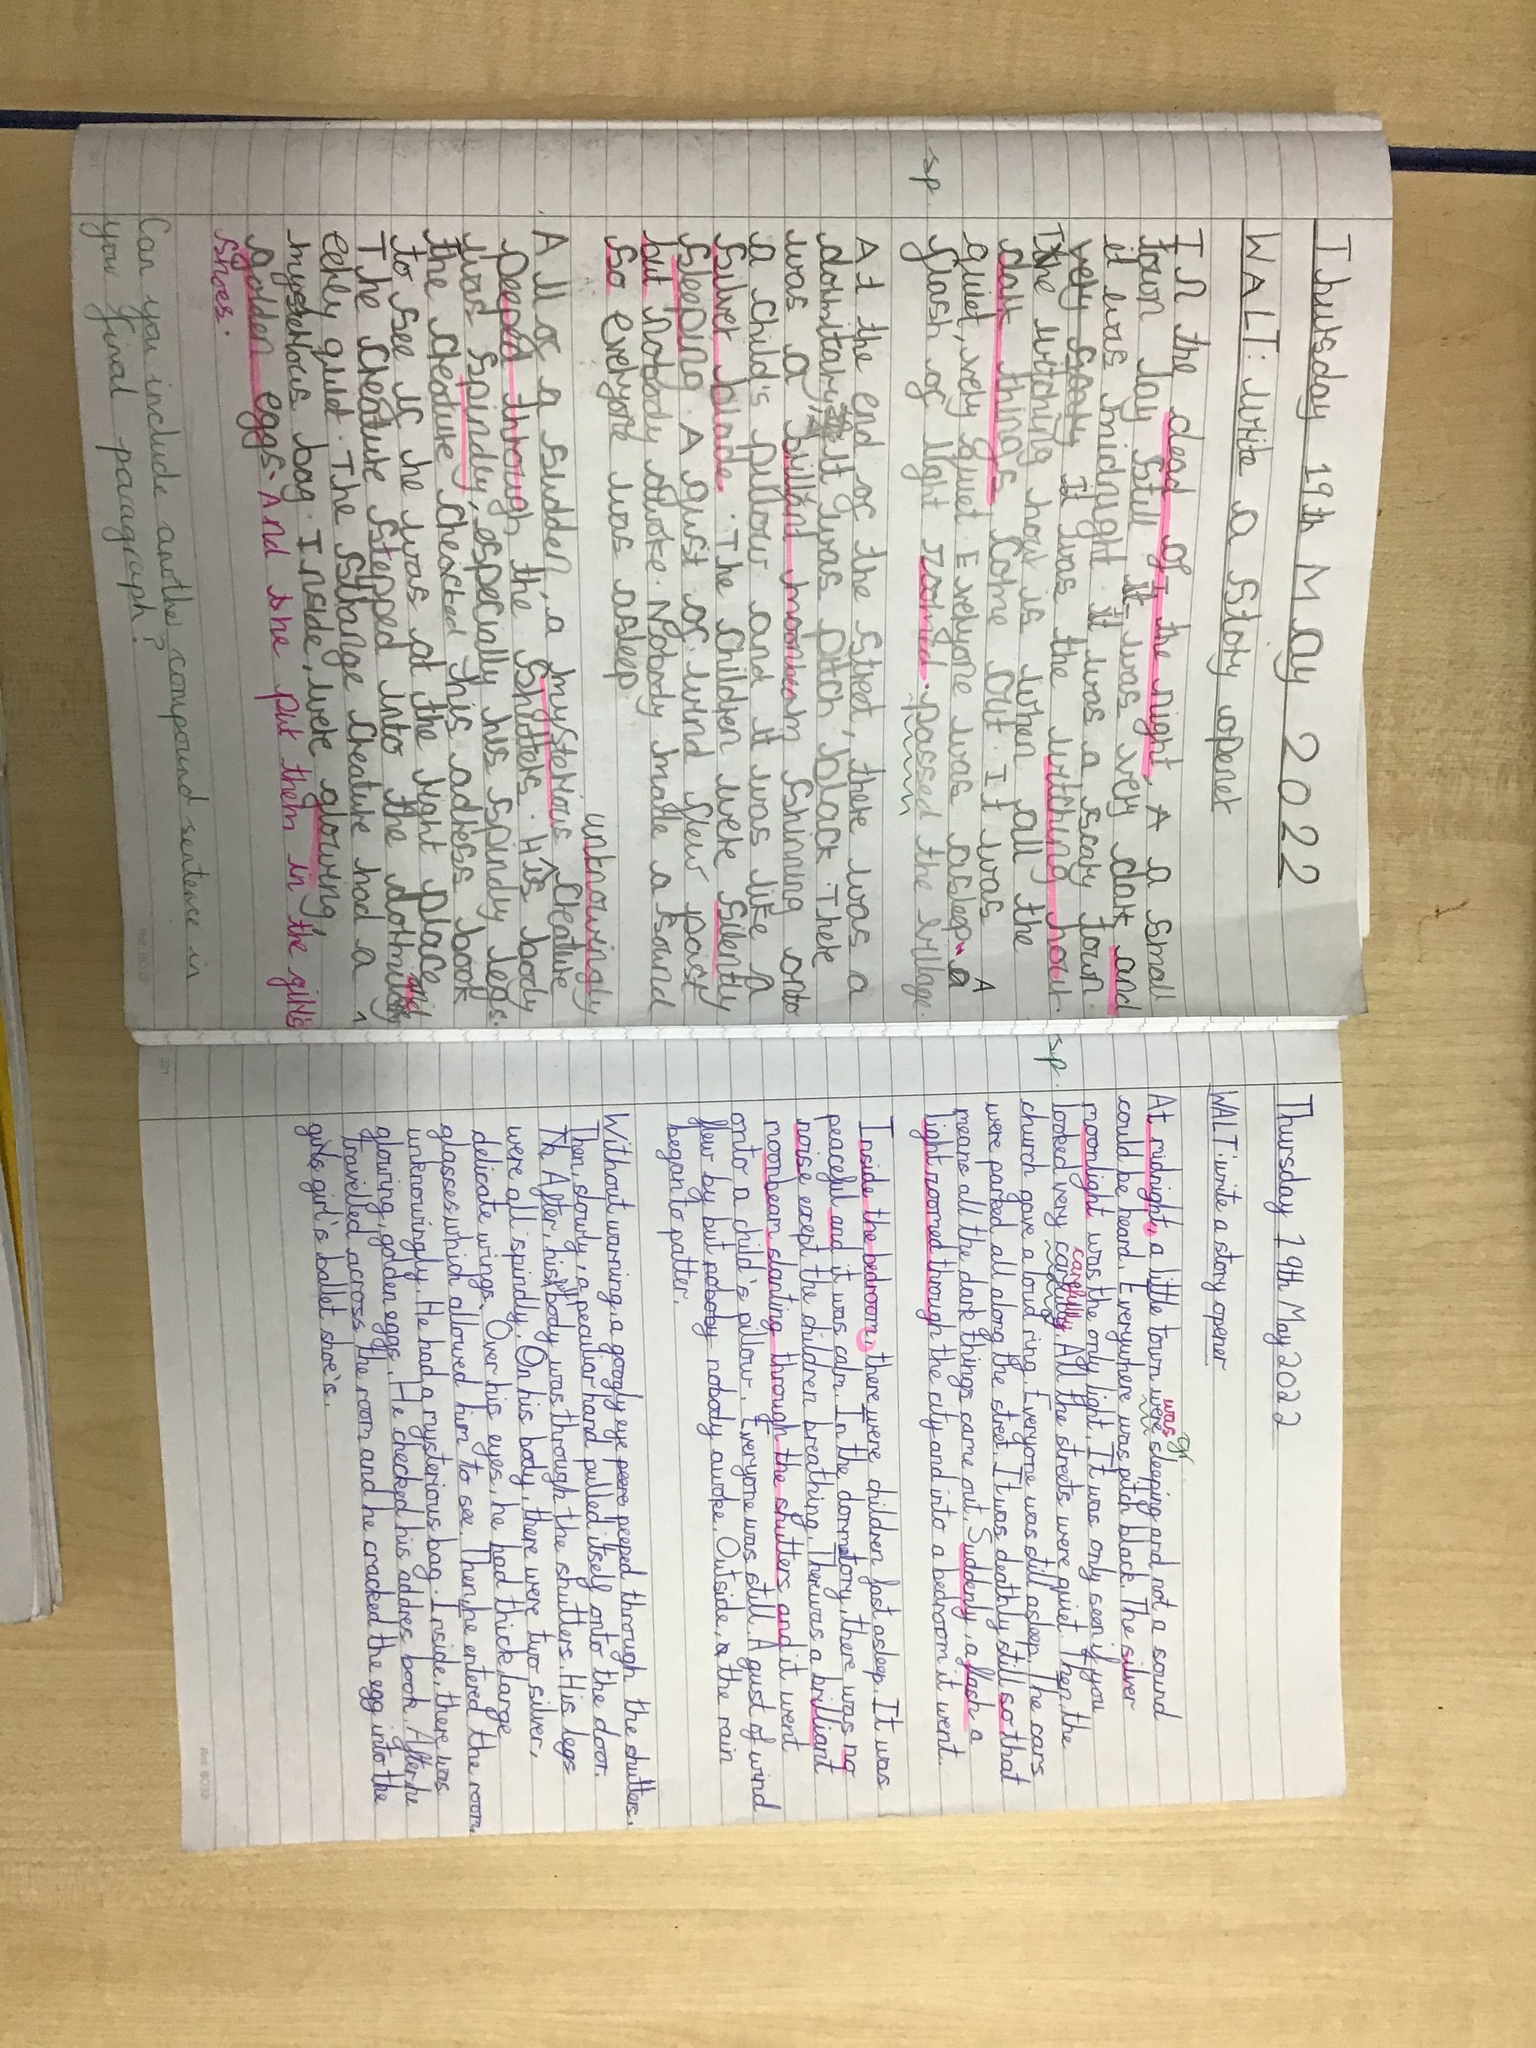 Thursday 19th May 2022
WALT: write a story opener
In the dead of the night, A a small
town lay still. It was very dark and
it was midnight. It was a scary town.
very spooky It was the witching hour.
The witching hour is when all the
dark things come out. It was A
quiet, very quiet. Everyone was asleep. a
sp flash of light zoomed. passed the village.
At the end of the street, there was a
dormitary, It was pitch black. There
was a brillant moonbeam shinning onto
a child's pillow and it was like a
silver blade. The children were silently
sleeping. A gust of wind flew past
but nobody awoke. Nobody made a sound
so everyone was asleep.
unknowingly
All of a sudden, a mysterious creature
peeped through the shutters. His body
was spindly, especially his spindly legs.
the creature checked his adress book
to see if he was at the right place and
The creature stepped into the dormitary
eerily quiet. The strange creature had a
mysterious bag. Inside, were glowing,
golden eggs. And she put them in the girl's
shoes.
Can you include another compound sentence in
your final paragraph?
Thursday 19th May 2022
WALT: write a story opener
was gr
At midnight, a little town were sleeping and not a sound
could be heard. Everywhere was pitch black. The silver
moonlight was the only light. It was only seen if you
carefully
sp. looked very carfully. All the streets were quiet. Then, the
church gave a loud ring. Everyone was still asleep. The cars
were parked all along the street. It was deathly still so that
means all the dark things came out. Suddenly, a flash a
light zoomed through the city and into a bedroom it went.
Inside the bedroom, there were children fast asleep. It was
peaceful and it was calm. In the dormatory, there was no
noise except the children breathing. There was a brilliant
moonbeam slanting through the shutters and it went
onto a child's pillow. Everyone was still. A gust of wind
flew by but nobody nobody awoke. Outside, a the rain
began to patter.
Without warning, a googly eye peere peeped through the shutters.
Then, slowly, a peculiar hand pulled itself onto the door.
Th After, his body was through the shutters. His legs
were all spindly. On his body, there were two silver,
delicate wings. Over his eyes, he had thick, large
glasses which allowed him to see. Then, he entered the room
unknowingly. He had a mysterious bag. Inside, there was
glowing, golden eggs. He checked his address book. After, he
travelled across the room and he cracked the egg into the
girls girl's ballet shoe's.